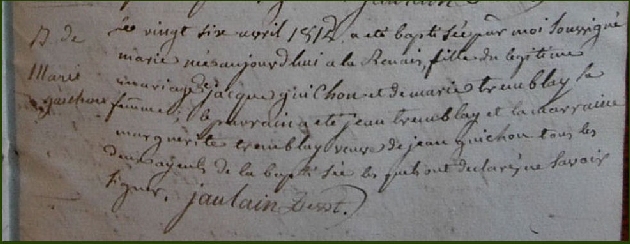 B. de
Marie
guichon
Le vingt six avril 1812 a été baptisée par moi soussigné
marie née aujourd'hui a la Renais, fille du legitime
mariage jacque guichon et de marie tremblay sa
femme; le parrain a été jean tremblay et la marraine
marguerite tremblay veuve de jean guichon tous les
deux de la baptisée les quels ont declaré ne savoir
signer. jaulain